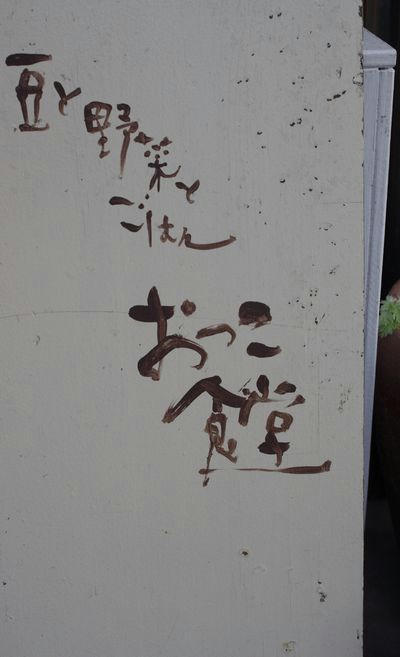 豆と野菜と
ごはん
おっこ
食堂